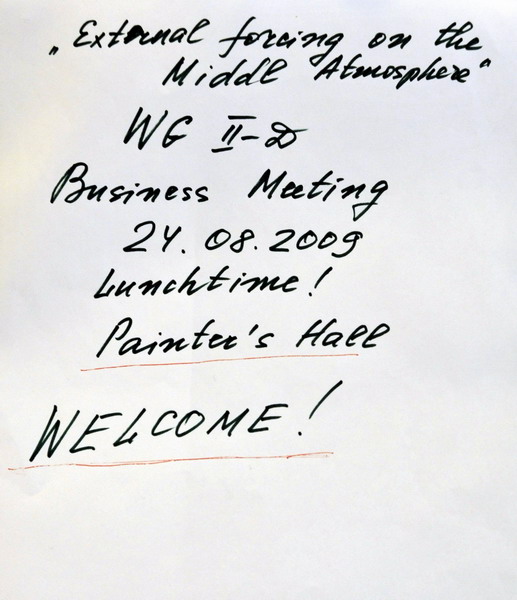 „External forcing on the
Middl Atmosphere"
WG II-D
Business Meeting
24.08.2009
Lunchtime!
Painter's Hall
WELCOME!